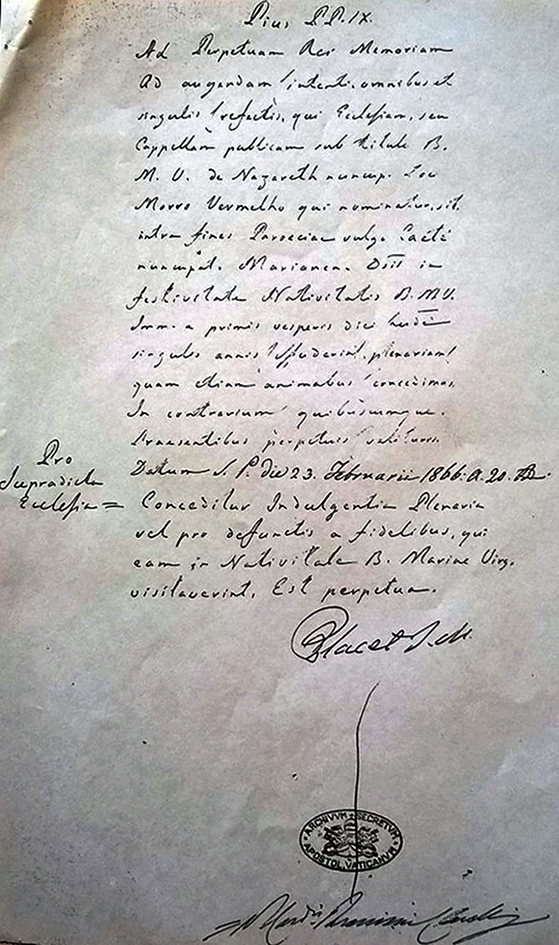 Pius PP. IX.
Ad Perpetuam Rei Memoriam
Ad augendam intenti, omnibus et
singulis refectis, qui Ecclesiam, seu
Cappellam publicam sub titulo B.
M. V. de Nazareth nuncup. Loc
Morro Vermelho qui nominatur, sit.
intra fines Paroeciae vulgo Caétè
nuncupat. Marianen. Diis in
festivitate Nativitatis B. M. V.
Imm. a primis vesperis diei
singulis annis plenariam
quam etiam animabus concedimus.
In contrarium quibuscumque.
Praesentibus perpetuis valituris.
Pro
Supradicta
Ecclesia =
Datum S. P. die 23. Februarii 1866. A. 20.
Conceditur Indulgentia Plenaria
vel pro defunctis a fidelibus, qui
eam in Nativitate B. Mariae Virg.
visitaverint, Est perpetua.
Placet J. M.
ARCHIVVM SECRETVM
APOSTOL. VATICANVM